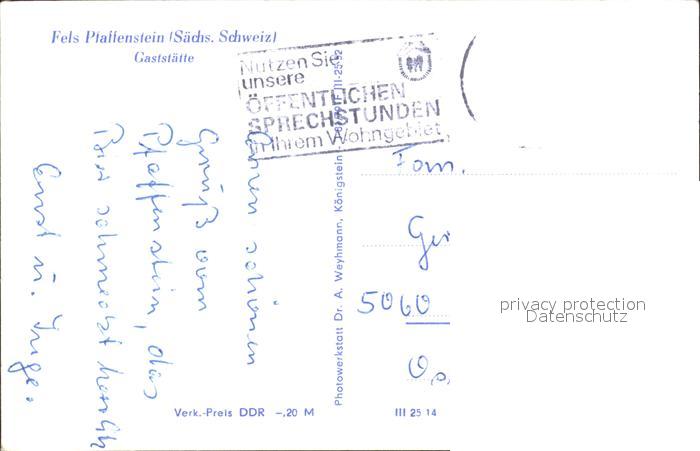 Fels Pfaffenstein (Sächs. Schweiz)
Gaststätte
Nutzen Sie
unsere
ÖFFENTLICHEN
SPRECHSTUNDEN
in Ihrem Wohngebiet
Einen schönen
Gruß vom
Pfaffenstein, das
Bier schmeckt herrlich
Ernst u. Inge.
Photowerkstatt Dr. A. Weyhmann, Königstein
III-25-52
Fam.
5060
privacy protection
Datenschutz
Verk.-Preis DDR -,20 M
III 25 14